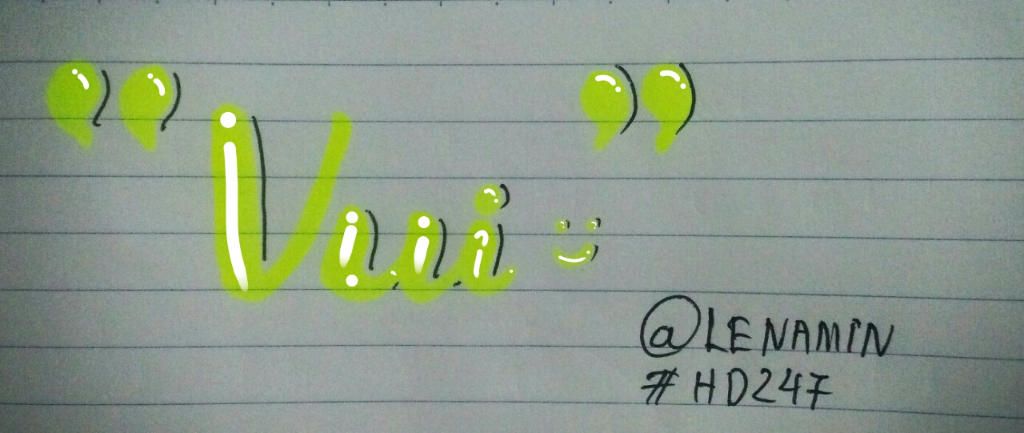 "Vui :)"
@LENAMIN
#HD247